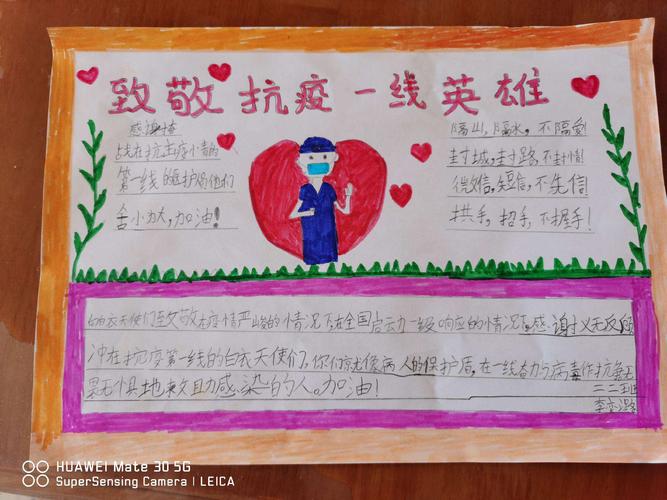 致敬抗疫一线英雄
感谢
战在抗击疫情的
第一线的医护
舍小为大,加油!
隔山,隔水,不隔爱
封城,封路,不封情
微信,短信,不失信
拱手,招手,不握手!
白衣天使们致敬在疫情严峻的情况下,在全国启动一级响应的情况下,感谢义无反顾
冲在抗疫第一线的白衣天使们,你们就像病人的保护盾,在一线奋力与病毒作抗争无
畏无惧地来救助感染的人。加油!
二二班
HUAWEI Mate 30 5G
SuperSensing Camera | LEICA